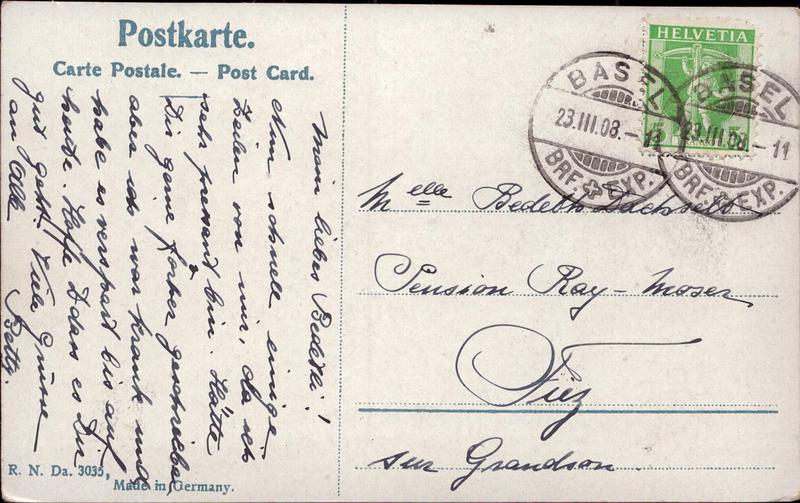 Postkarte.
Carte Postale. — Post Card.
Mein liebes Bedeth!
Nun schnell einige
Zeilen von mir, da ich
sehr pressant bin. Hätte
Dir gerne vorher geschrieben
aber ich war krank und
habe es verspart bis auf
heute. Hoffe dass es Dir
gut geht. Viele Grüsse
an Alle
Betty.
HELVETIA
5
BASEL
23.III.08.-11
BRF. EXP.
BASEL
23.III.08-11
BRF. EXP.
Melle Bedeth
Pension Ray-Moser
Fiez
sur Grandson
R. N. Da. 3035,
Made in Germany.